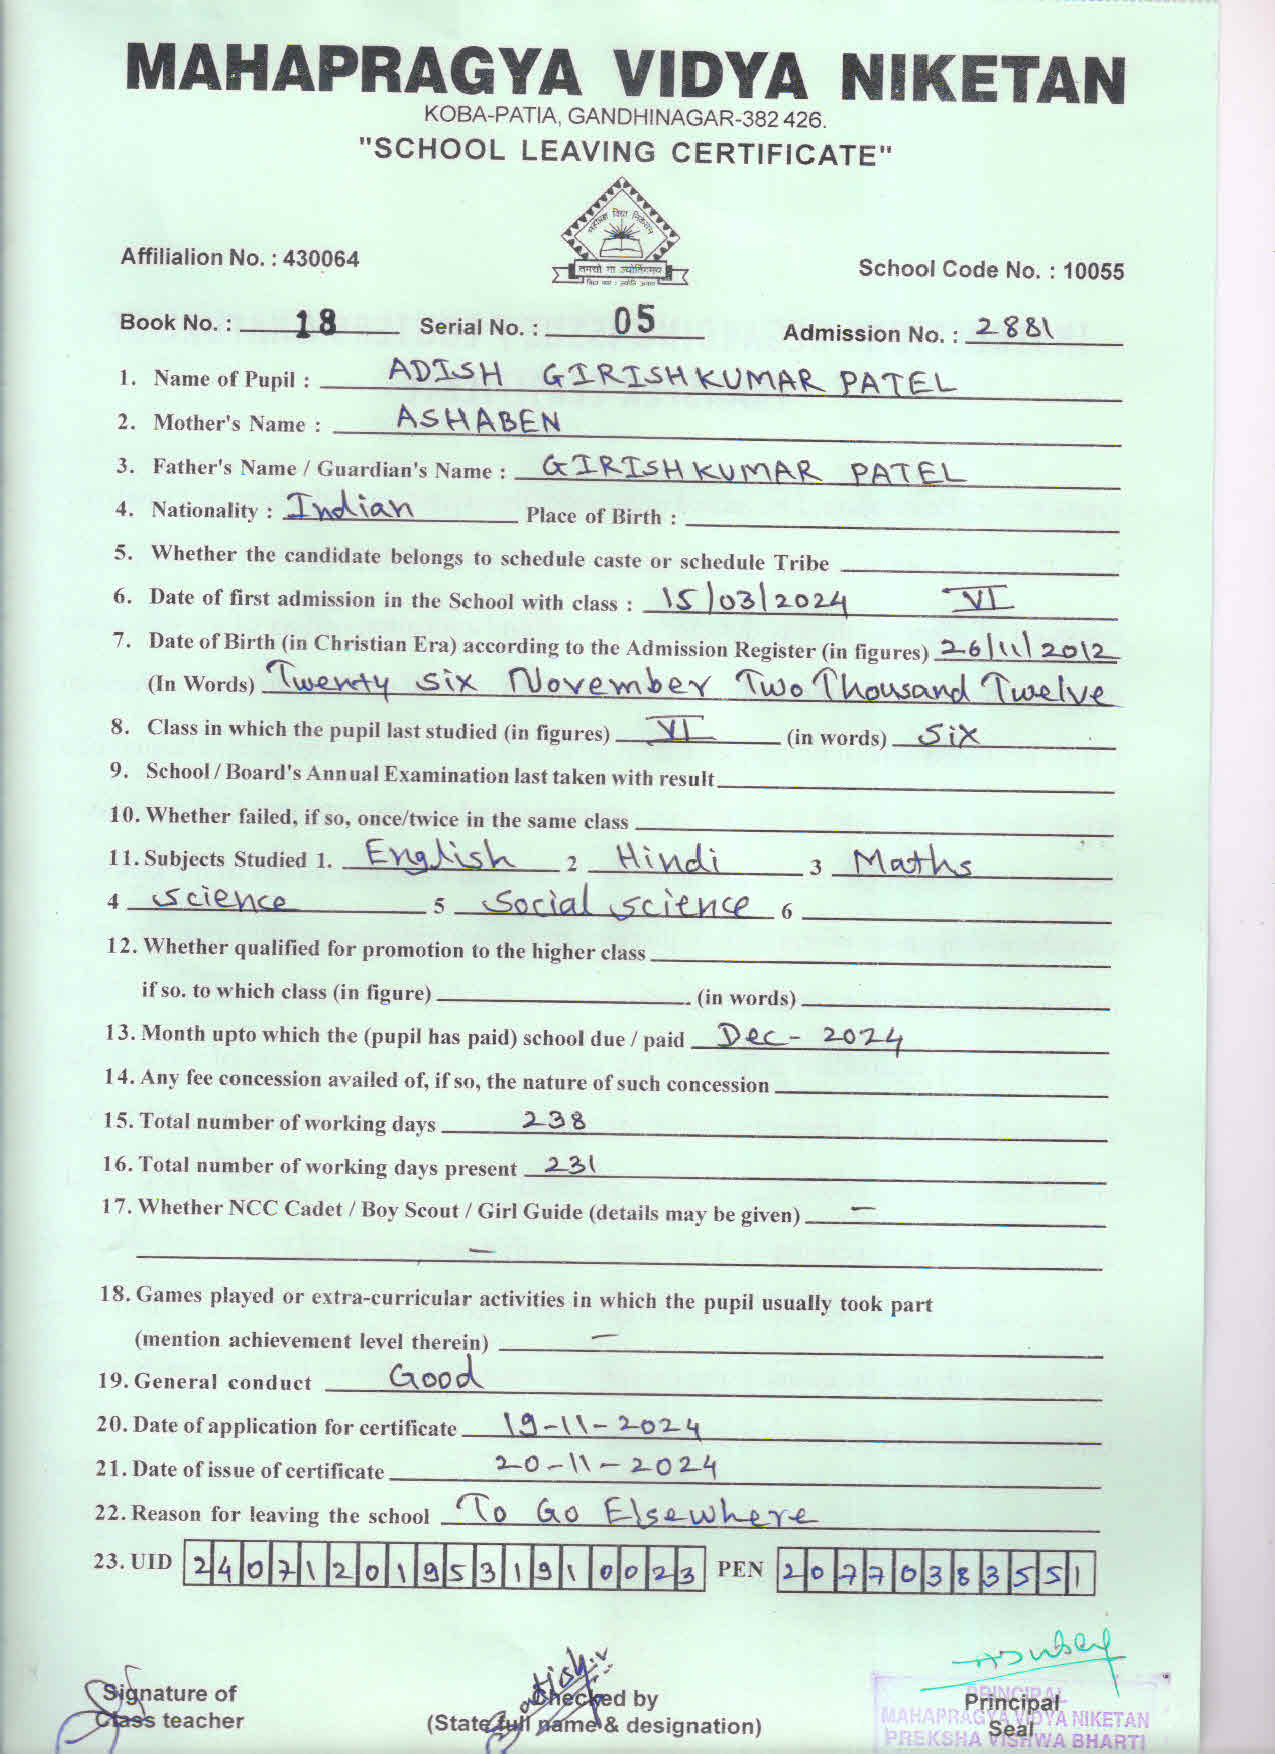 MAHAPRAGYA VIDYA NIKETAN
KOBA-PATIA, GANDHINAGAR-382 426.
"SCHOOL LEAVING CERTIFICATE"
महाप्रज्ञ विद्या निकेतन
तमसो मा ज्योतिर्गमय
Affilialion No. : 430064
School Code No. : 10055
Book No. : 18 Serial No. : 05 Admission No. : 2881
1. Name of Pupil : ADISH GIRISHKUMAR PATEL
2. Mother's Name : ASHABEN
3. Father's Name / Guardian's Name : GIRISHKUMAR PATEL
4. Nationality : Indian Place of Birth :
5. Whether the candidate belongs to schedule caste or schedule Tribe
6. Date of first admission in the School with class : 15/03/2024 VI
7. Date of Birth (in Christian Era) according to the Admission Register (in figures) 26/11/2012
(In Words) Twenty six November Two Thousand Twelve
8. Class in which the pupil last studied (in figures) VI (in words) Six
9. School / Board's Annual Examination last taken with result
10. Whether failed, if so, once/twice in the same class
11. Subjects Studied 1. English 2 Hindi 3 Maths
4 Science 5 Social science 6
12. Whether qualified for promotion to the higher class
if so. to which class (in figure) (in words)
13. Month upto which the (pupil has paid) school due / paid Dec - 2024
14. Any fee concession availed of, if so, the nature of such concession
15. Total number of working days 238
16. Total number of working days present 231
17. Whether NCC Cadet / Boy Scout / Girl Guide (details may be given) -
-
18. Games played or extra-curricular activities in which the pupil usually took part
(mention achievement level therein) -
19. General conduct Good
20. Date of application for certificate 19-11-2024
21. Date of issue of certificate 20-11-2024
22. Reason for leaving the school To Go Elsewhere
23. UID 240712019531910023 PEN 20770383551
Signature of
Class teacher
Checked by
(State full name & designation)
Principal
Seal
PRINCIPAL
MAHAPRAGYA VIDYA NIKETAN
PREKSHA VISHWA BHARTI